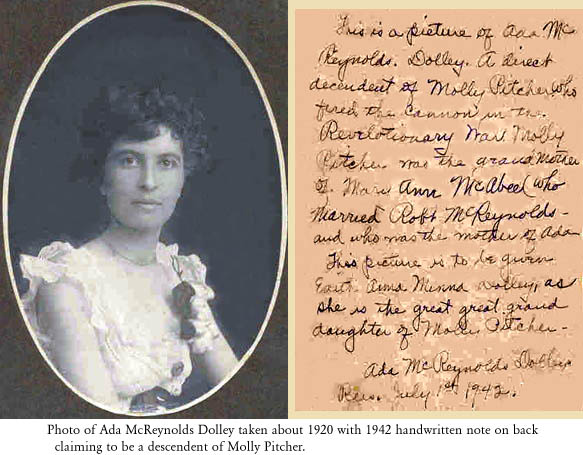 This is a picture of Ada Mc
Reynolds. Dolley. A direct
decendent of Molly Pitcher who
fired the cannon in the
Revolutionary War Molly
Pitcher was the grand Mother
of Mary Ann McAbee (who
married Robt McReynolds-
and who was the mother of Ada
This picture is to be given
Anna Minna Dolley, as
she is the great great grand
daughter of Molly Pitcher-
Ada McReynolds Dolley
July 1st 1942.
Photo of Ada McReynolds Dolley taken about 1920 with 1942 handwritten note on back
claiming to be a descendent of Molly Pitcher.